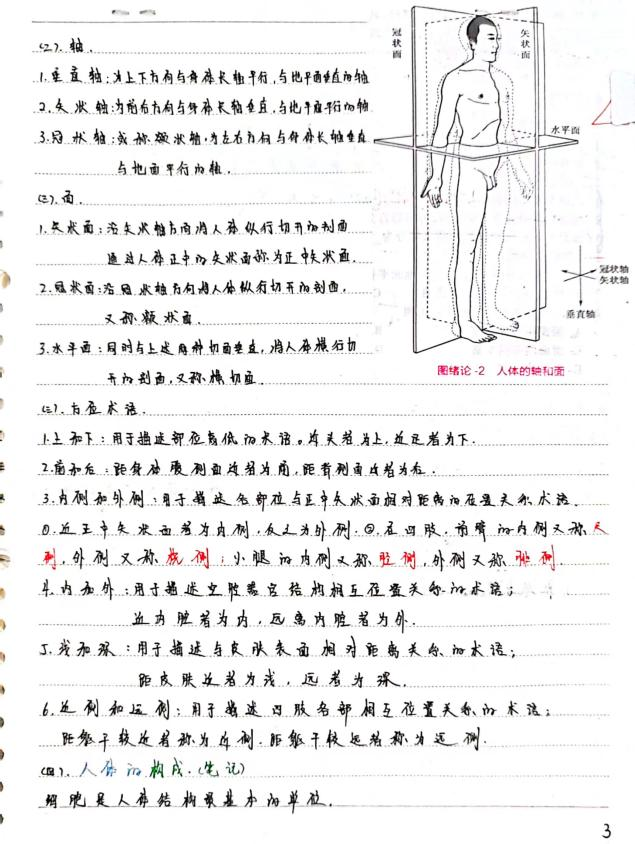 (二). 轴.
1. 垂直轴:为上下方向与身体长轴平行,与地平面垂直的轴
2. 矢状轴:为前后方向与身体长轴垂直,与地平面平行的轴
3. 冠状轴:或称额状轴,为左右方向与身体长轴垂直
与地面平行的轴.
(三). 面.
1. 矢状面:沿矢状轴方向将人体纵行切开的剖面
通过人体正中的矢状面称为正中矢状面.
2. 冠状面:沿冠状轴方向将人体纵行切开的剖面.
又称额状面.
3. 水平面:同时与上述两种切面垂直,将人体横行切
开的剖面,又称横切面.
冠状面
矢状面
水平面
冠状轴
矢状轴
垂直轴
图绪论-2 人体的轴和面
(三). 方位术语.
1. 上和下:用于描述部位高低的术语。近头者为上,近足者为下.
2. 前和后:距身体腹侧面近者为前,距背侧面近者为后.
3. 内侧和外侧:用于描述各部位与正中矢状面相对距离的位置关系术语.
①. 近正中矢状面者为内侧,反之为外侧. ②. 在四肢. 前臂的内侧又称尺
侧,外侧又称桡侧;小腿的内侧又称胫侧,外侧又称腓侧.
4. 内和外:用于描述空腔器官结构相互位置关系的术语;
近内腔者为内,远离内腔者为外.
5. 浅和深:用于描述与皮肤表面相对距离关系的术语;
距皮肤近者为浅,远者为深.
6. 近侧和远侧:用于描述四肢各部相互位置关系的术语;
距躯干较近者称为近侧. 距躯干较远者称为远侧.
(四). 人体的构成.(笔记)
细胞是人体结构最基本的单位.
3